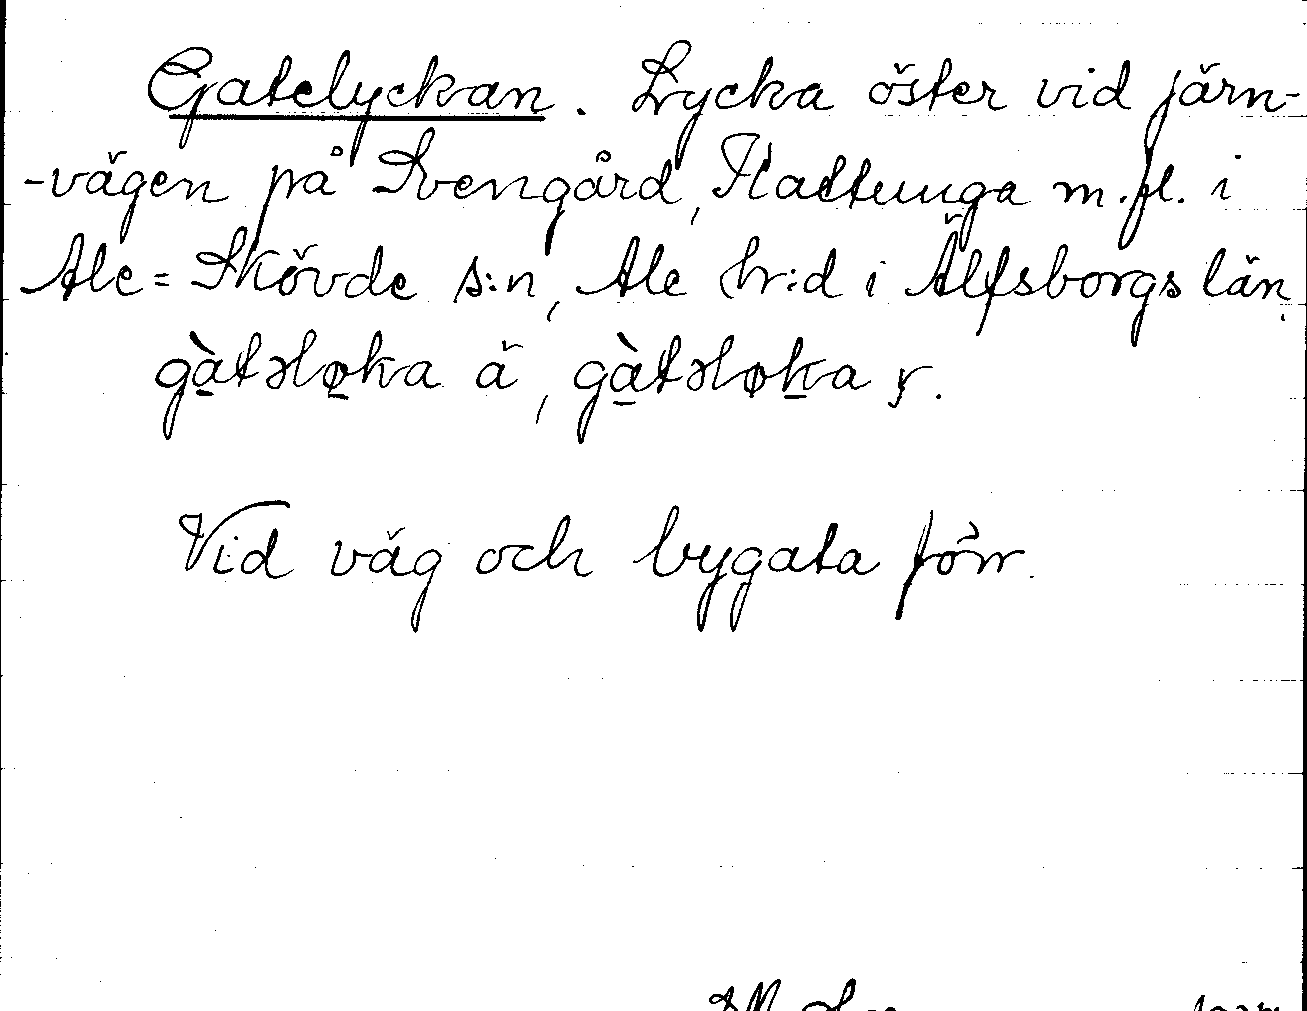 Gatelyckan. Lycka öster vid järn-
-vägen på Svengård, Hattunga m.fl. i
Ale=Skövde s:n, Ale hr:d i Älfsborgs län.
gàtəløka ä, gàtəløka y.
Vid väg och bygata förr.